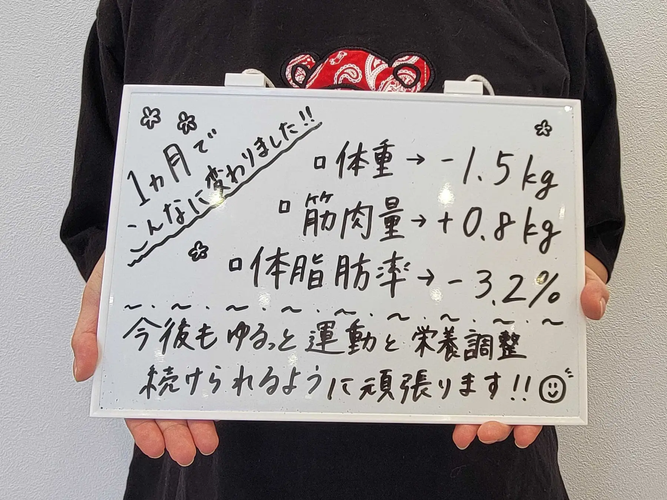 1ヵ月で
こんなに変わりました!!
□体重→-1.5kg
□筋肉量→+0.8kg
□体脂肪率→-3.2%
今後もゆるっと運動と栄養調整
続けられるように頑張ります!!